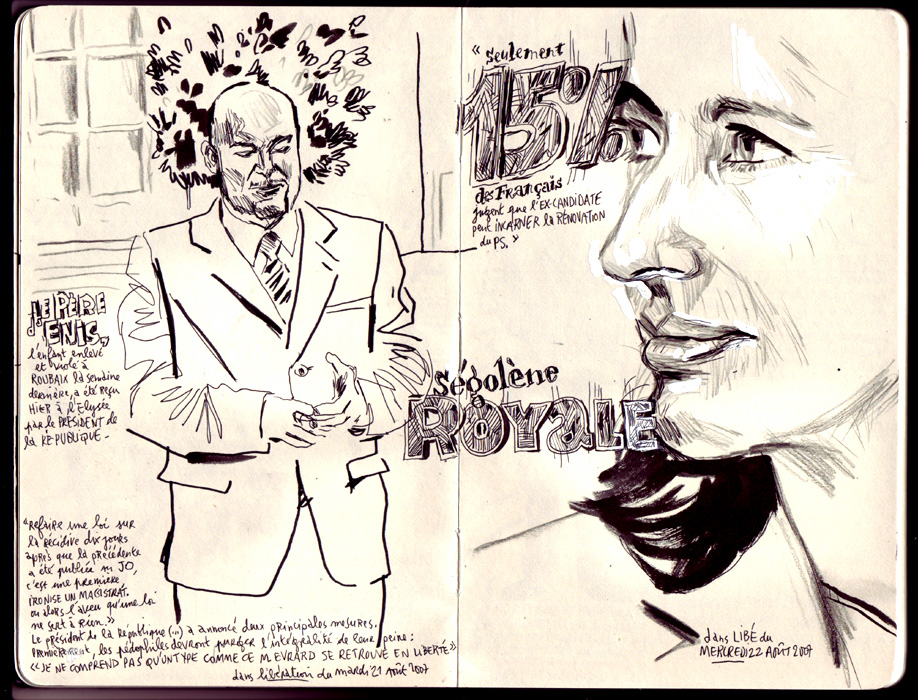 LE PÈRE
d'ENIS,
l'enfant enlevé
et violé à
ROUBAIX la semaine
dernière, a été reçu
HIER à l'Elysée
par le PRÉSIDENT de
la RÉPUBLIQUE -
"Refaire une loi sur
la récidive dix jours
après que la précédente
a été publiée au JO,
c'est une première,
IRONISE UN MAGISTRAT.
ou alors l'aveu qu'une loi
ne sert à Rien."
Le président de la République (...) a annoncé deux principales mesures.
PREMIÈREMENT, les pédophiles devront purger l'intégralité de leur peine:
"JE NE COMPREND PAS QU'UN TYPE COMME CE M EVRARD SE RETROUVE EN LIBERTÉ"
dans libération du mardi 21 Août 2007
"Seulement
15%
des Français
jugent que l'EX-CANDIDATE
peut INCARNER la RÉNOVATION
du PS."
Ségolène
ROYALE
dans LIBÉ du
MERCREDI 22 AOÛT 2007